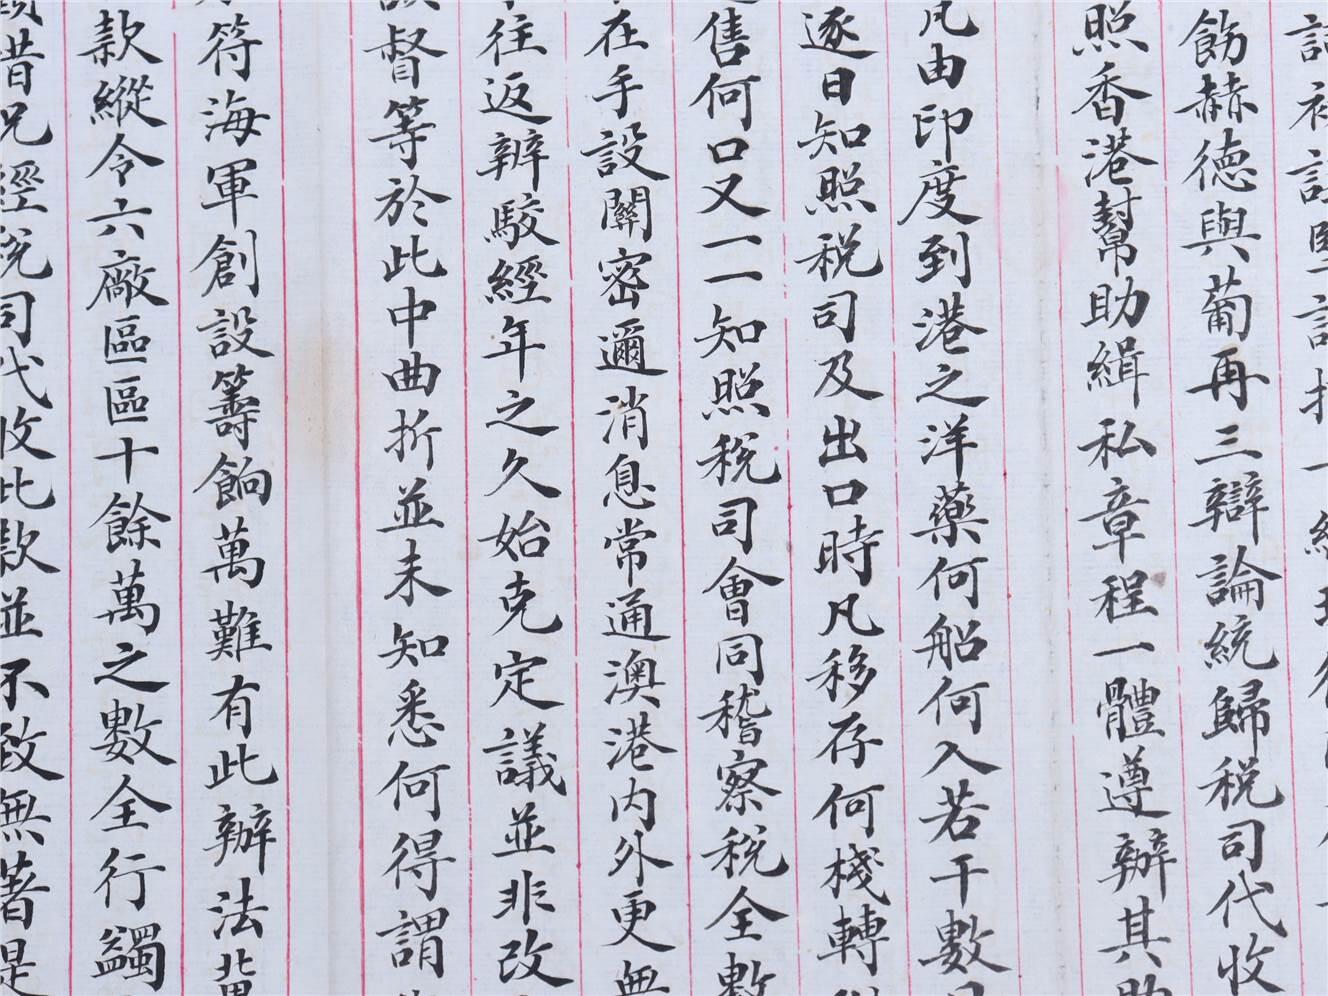 飭赫德與葡再三辯論統歸稅司代收
照香港幫助緝私章程一體遵辦其助
凡由印度到港之洋藥何船何入若干數
逐日知照稅司及出口時凡移存何棧轉
售何口又一一知照稅司會同稽察稅全數
在手設關密邇消息常通澳港內外更無
往返辨駁經年之久始克定議並非改
督等於此中曲折並未知悉何得謂
符海軍創設籌餉萬難有此辦法葡
款縱令六廠區區十餘萬之數全行蠲
昔況經稅司代收此款並不致無著是